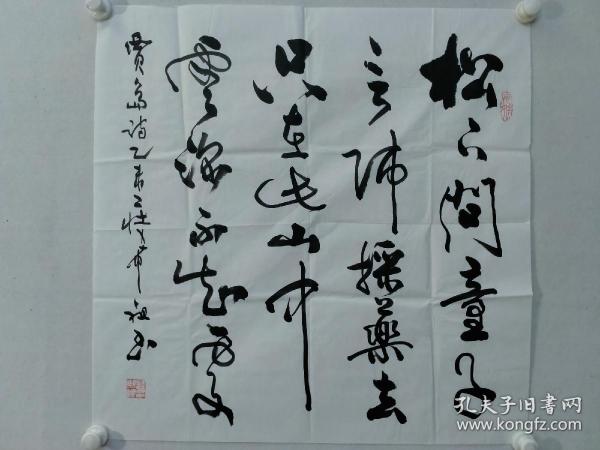 松下问童子
言师采药去
只在此山中
云深不知处
贾岛诗乙未
孔夫子旧书网
www.kongfz.com